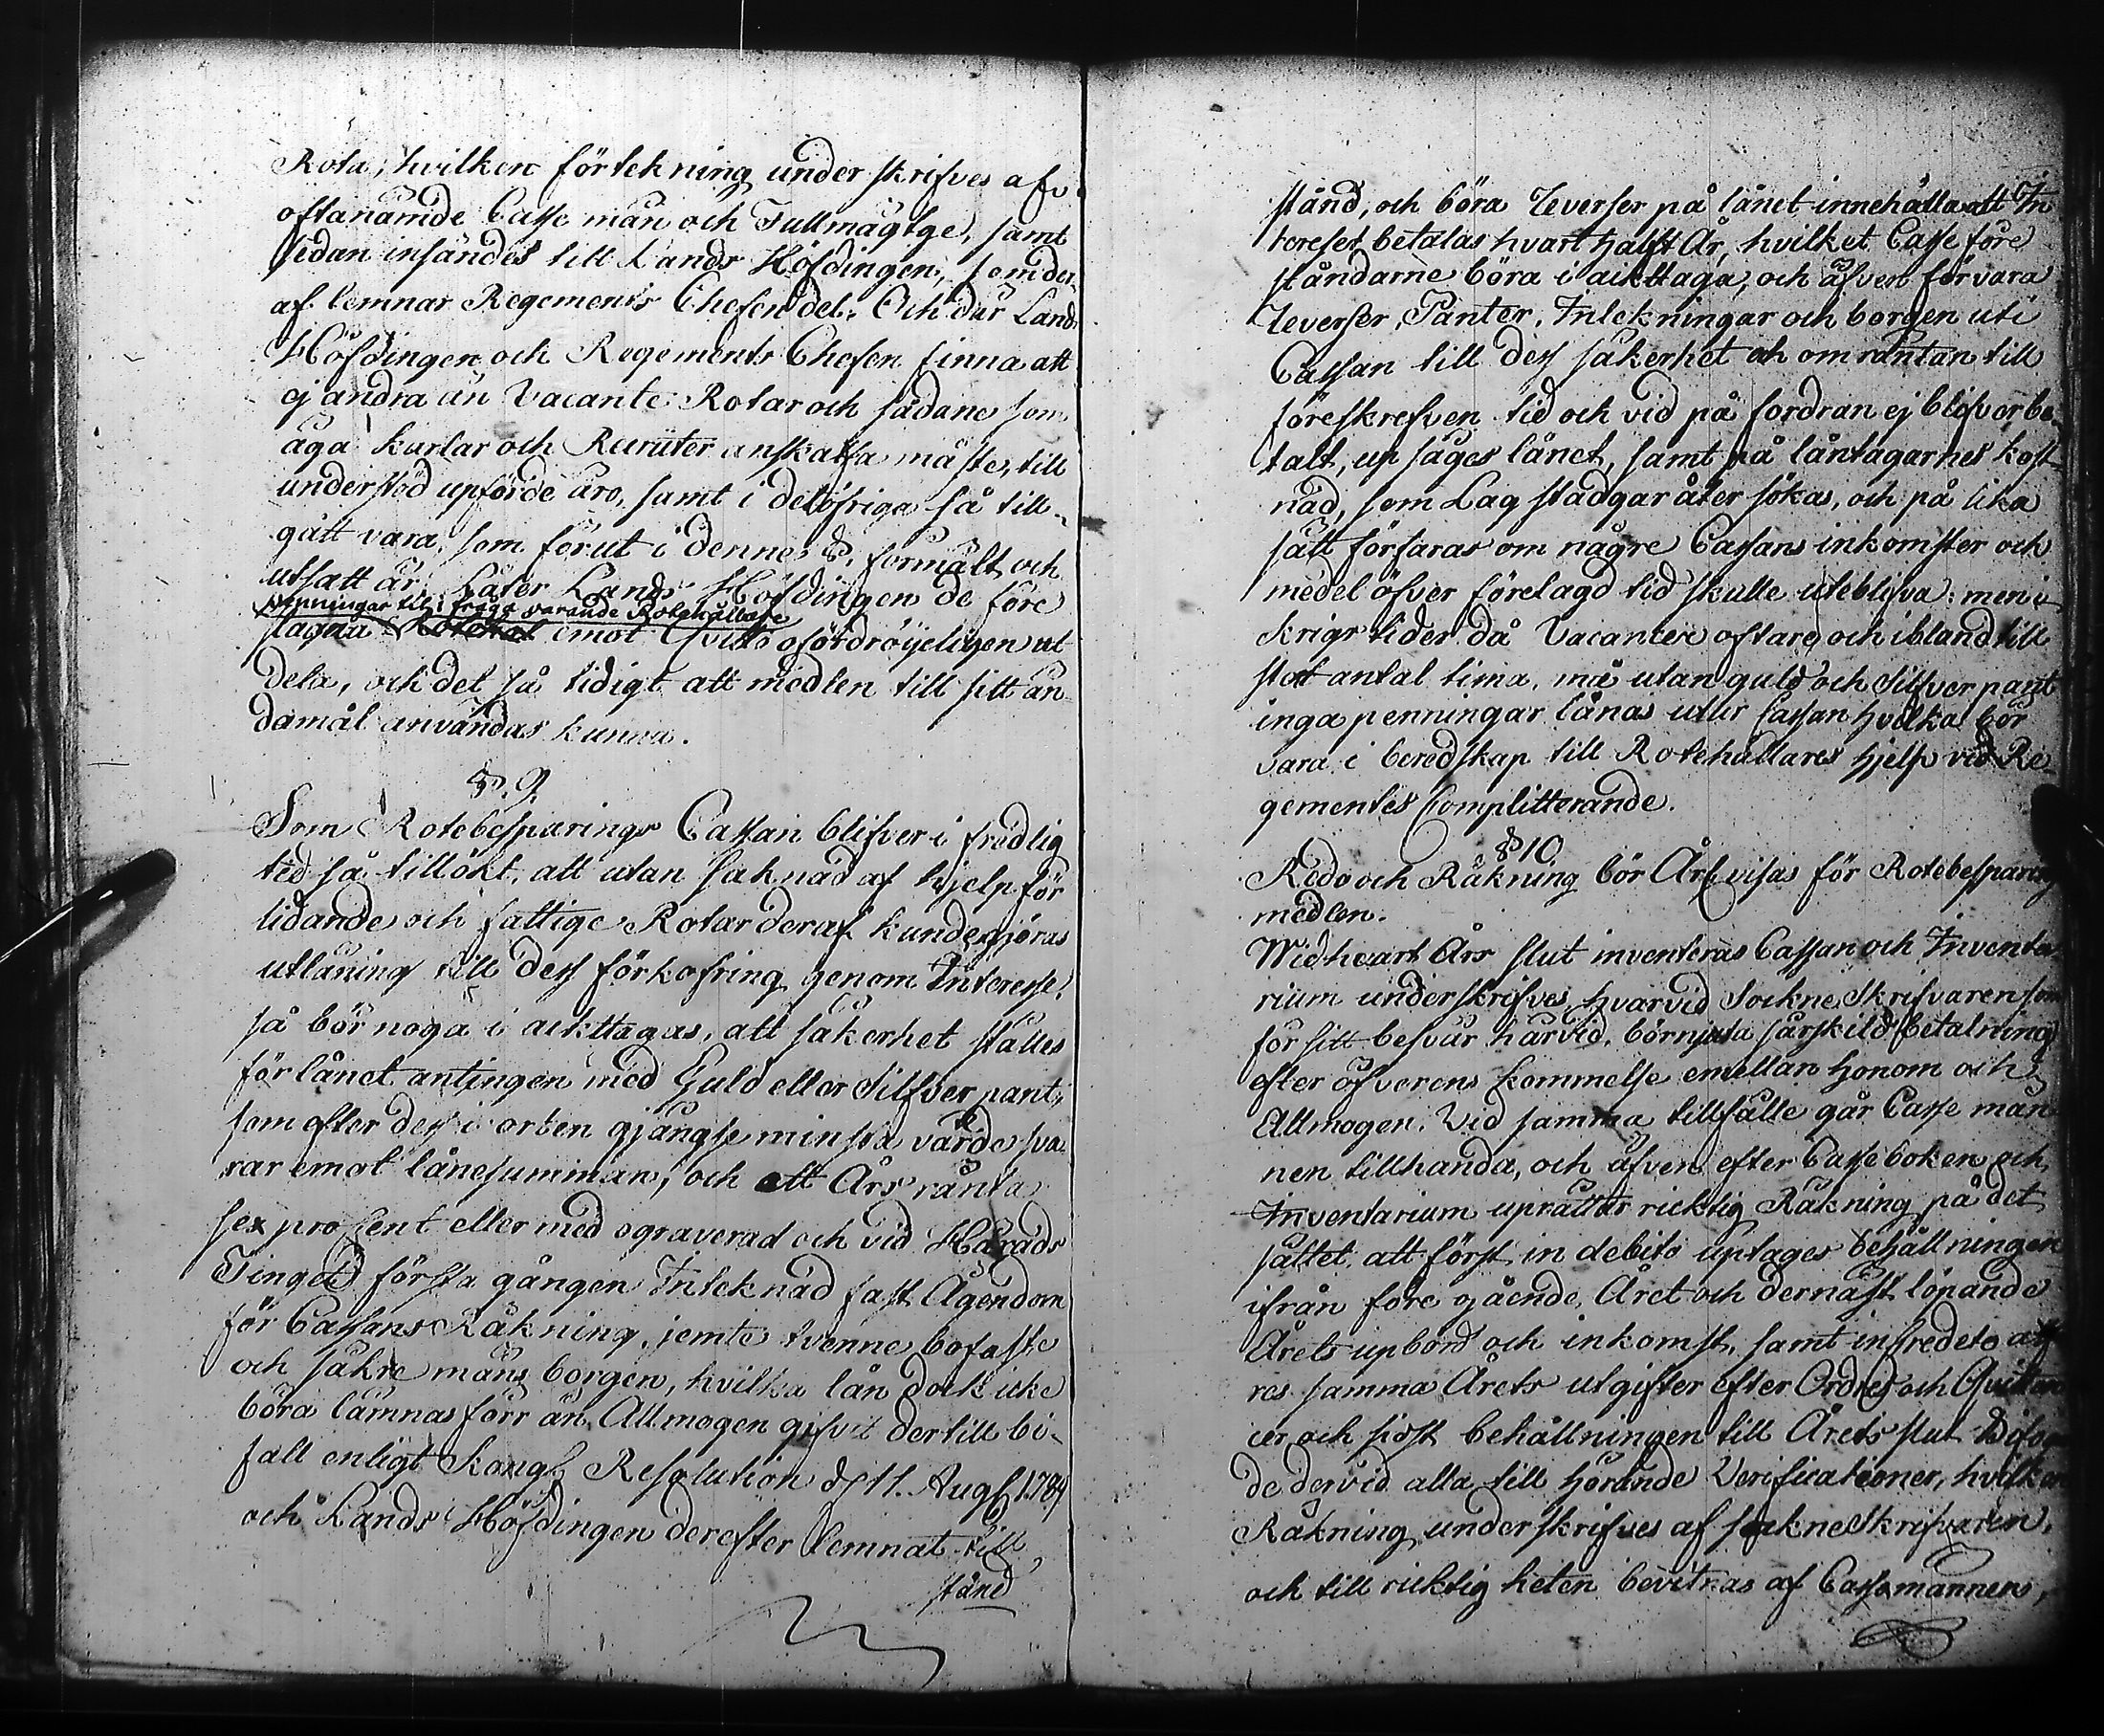 Rota, hvilken förtekning underskrifves af
oftanämde Casse män och Fullmägtge, samt
sedan insändes till Lands Höfdingen, som der-
af lemnar Regements Chefen del. Och där Lands
Höfdingen och Regements Chefen finna att
ej andra än Vacante Rotar och sådane som
äga karlar och Recruter anskaffa måste, till
understöd upförde äro, samt i det öfriga så till-
gått vara, som förut i denne §. förmält och
utsatt är, Låter Lands Höfdingen de före
penningar til i fråga varande Rotehållare
slagna imot Qvitto ofördröjeligen ut
dela, och det så tidigt att medlen till sitt än
damål användas kunna.
§. 9.
Som Rotebesparings Cassan blifver i fredlig
tid så tillökt, att utan saknad af hjelp för
lidande och fattige Rotar deraf kunde gjöras
utlåning till dess förkofring genom Interesse,
så bör noga i ackttagas, att säkerhet ställes
för lånet antingen med Guld eller Silfver pant,
som efter dess i orten gjängse minsta värde sva
rar emot lånesumman, och ett Års ränta
sex pro Cent eller med ograverad och vid Härads
Tinget första gången Inteknad fast Ägendom
för Cassans Räkning, jemte tvenne bofaste
och säkre mäns borgen, hvilka lån dock icke
böra lämnas förr än Allmogen gifvit dertill bi-
fall enligt Kongl. Resolution d 11. Aug. 1784
och Lands Höfdingen derefter lemnat till,
stånd
stånd, och böra Reverser på lånet innehålla att In
teresset betalas hvart halft År, hvilket Casse före
ståndarne böra i ackttaga, och äfven förvara
Reverser, Panter, Intekningar och borgen uti
Cassan till dess säkerhet och om räntan till
föreskrefven tid och vid på fordran ej blifver be-
talt, up säges lånet, samt på låntagarnes kost
nad, som Lag stadgar åter sökas, och på lika
sätt förfaras om någre Cassans inkomster och
medel öfver förelagd tid skulle uteblifva: men i
krigs tider då Vacancer oftare och ibland till
stort antal tima, må utan guld och Silfver pant
inga penningar lånas utur Cassan hvilka bör
vara i beredskap till Rotehållares hjelp vid Re-
gementes Complitterande.
§ 10.
Redo och Räkning bör Årl. visas för Rotebesparings
medlen.
Wid hvart Års slut inventeras Cassan och Inventa
rium underskrifves, hvarvid Sockne Skrifvaren som
för sitt besvär härvid, bör njuta särskild betalning
efter öfverens kommelse emellan honom och
Allmogen. Vid samma tillfälle går Casse män
nen tillhanda, och äfven efter Casse boken och
Inventarium uprättar ricktig Räkning på det
sättet, att först in debito uptages behållningen
ifrån före gående Året och dernäst löpande
Årets upbörd och inkomst, samt in credito
res samma Årets utgifter efter Ordres och Qvitten
cer och sidst behållningen till Årets slut
de dervid alla till hörande Verificationer, hvilken
Räkning underskrifves af sockne Skrifvaren,
och till ricktig heten bevitnas af Cassemännen,